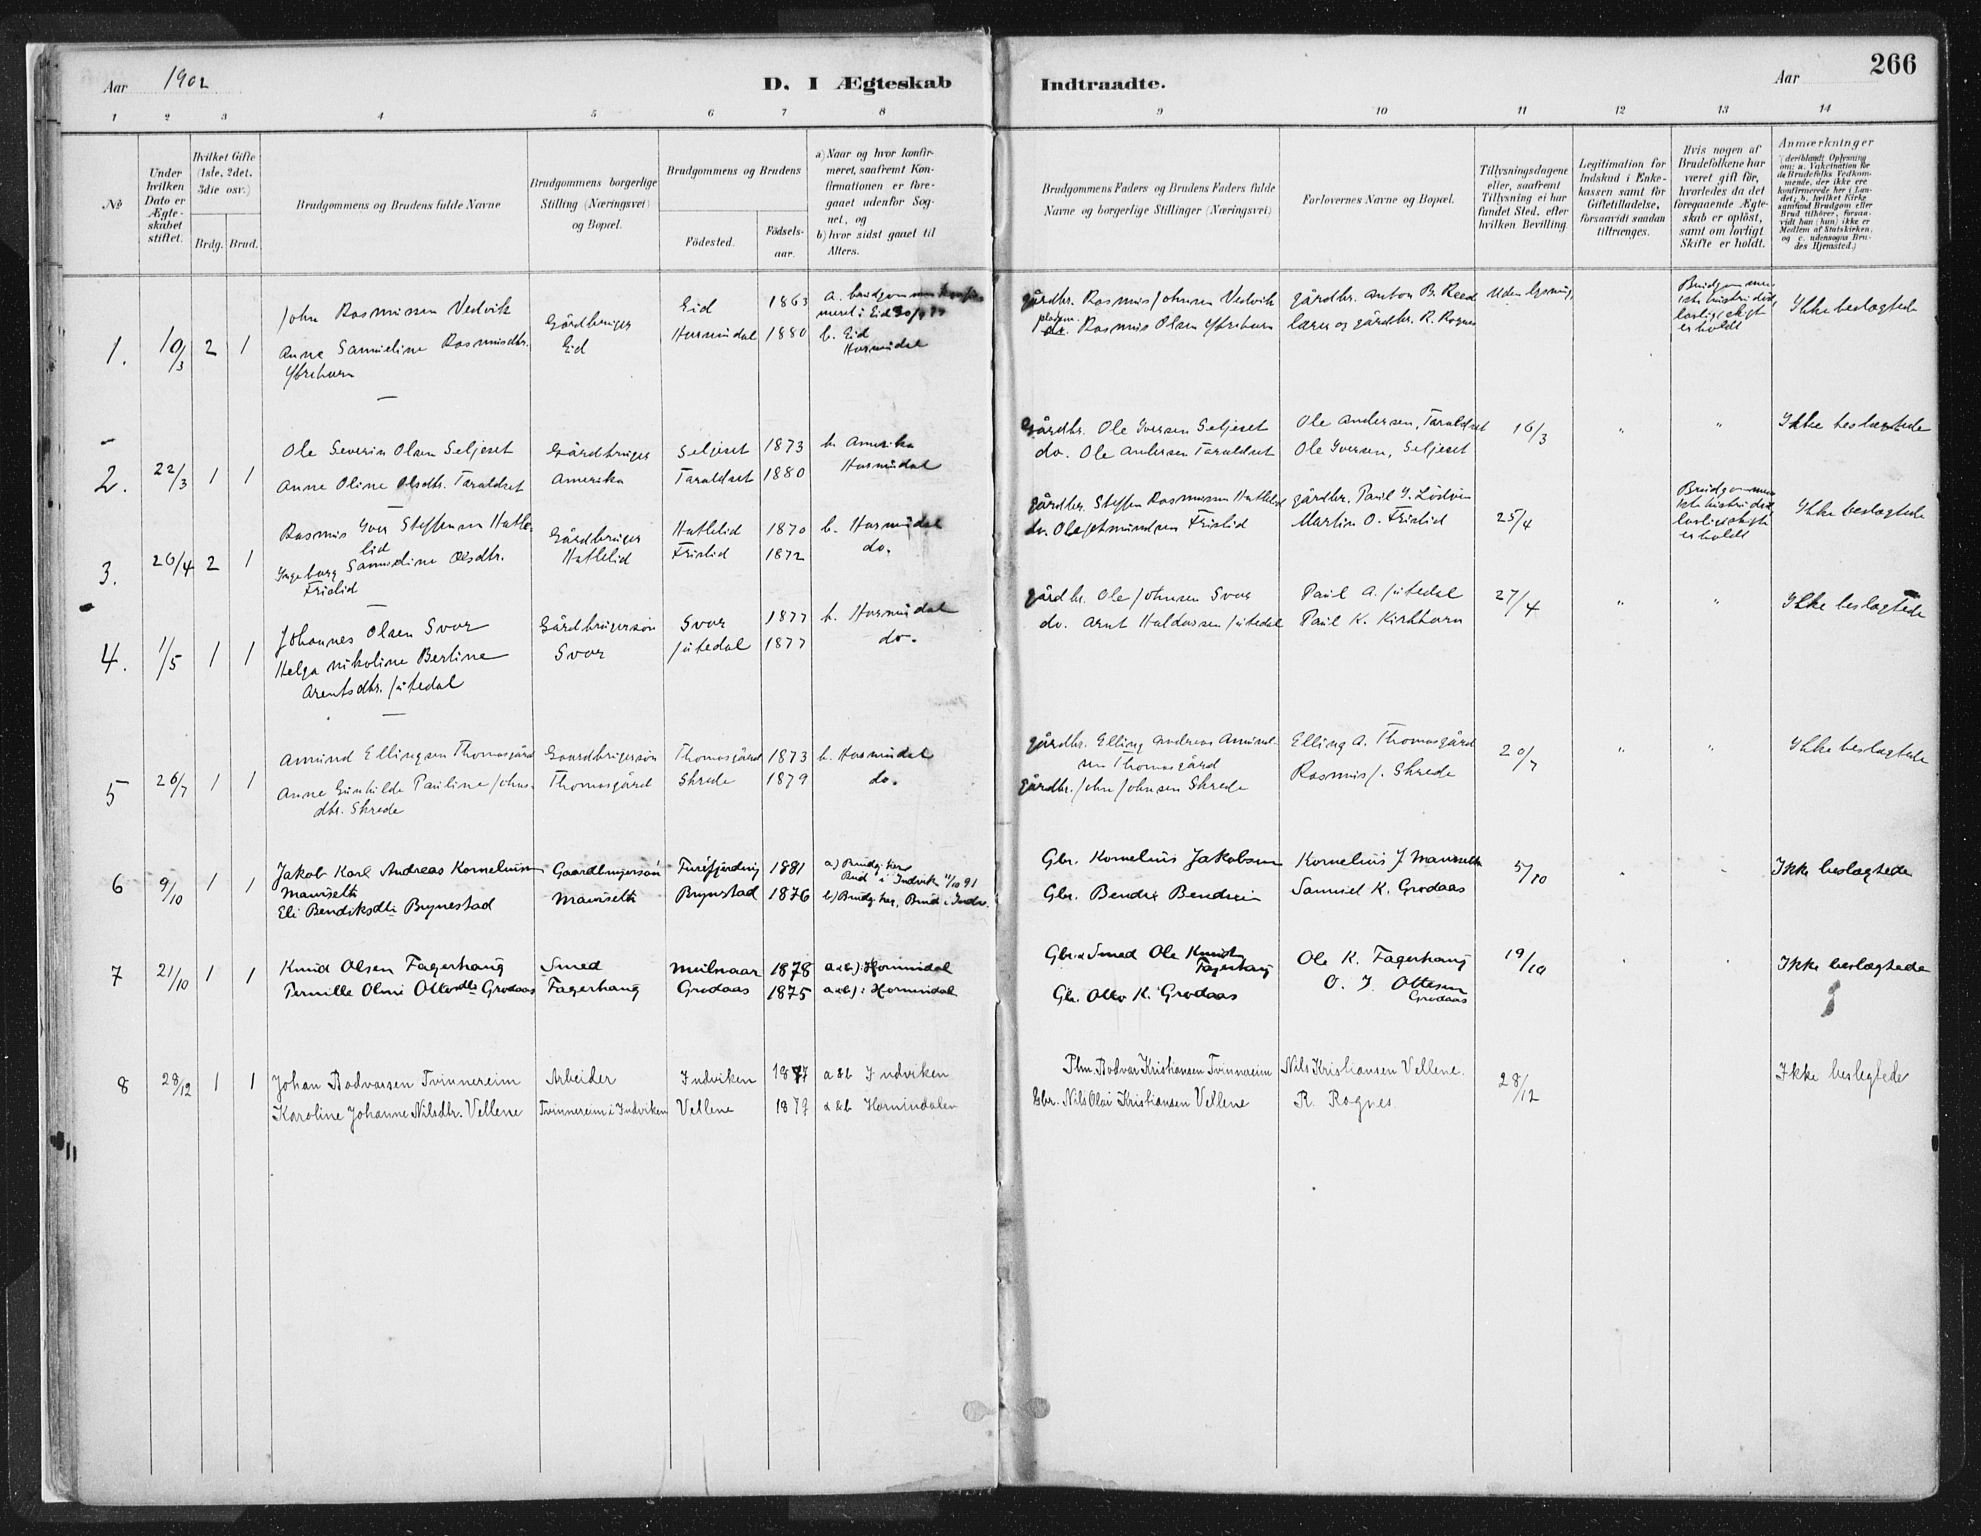 Aar 1902
D. I Ægteskab
Indtraadte.
Aar
266
1 2 3 4 5 6 7 8 9 10 11 12 13 14
No
Under hvilken Dato er Ægteskabet stiftet.
Hvilket Gifte (1ste, 2det, 3die osv.)
Brdg. Brud.
Brudgommens og Brudens fulde Navne
Brudgommens borgerlige Stilling (Næringsvei) og Bopæl.
Brudgommens og Brudens
Födested.
Födselsaar.
a) Naar og hvor konfirmeret, saafremt Konfirmationen er foregaaet udenfor Sognet, og
b) hvor sidst gaaet til Alters.
Brudgommens Faders og Brudens Faders fulde Navne og borgerlige Stillinger (Næringsvei)
Forlovernes Navne og Bopæl.
Tillysningsdagene eller, saafremt Tillysning ei har fundet Sted, efter hvilken Bevilling.
Legitimation for Indskud i Enkekassen samt for Giftetilladelse, forsaavidt saadan tiltrænges.
Hvis nogen af Brudefolkene har været gift för, hvorledes da det foregaaende Ægteskab er oplöst, samt om lovligt Skifte er holdt.
Anmærkninger
(deriblandt Oplysning om: a. Vakcination for de Brudefolks Vedkommende, der ikke ere konfirmerede her i Landet; b. hvilket Kirkesamfund Brudgom eller Brud tilhörer, forsaavidt han (hun) ikke er Medlem af Statskirken, og c. udensogns Brudes Hjemsted.)
1. 10/3 2 1
John Rasmussen Vedvik
Anne Samueline Rasmusdtr.
Ytrehorn
Gårdbruger
Eid
Eid 1863
Hornindal 1880
a. brudgommen
meret i Eid
b. Eid
Hornindal
gårdbr. Rasmus Johnsen Vedvik
pladsm. Rasmus Olsen Ytrehorn
gårdbr. Anton B. Reed
lærer og gårdbr. R. Rognes
Uden lysning
Brudgommens
1ste hustru död,
lovlig skift
er holdt
Ikke beslægtede
2. 22/3 1 1
Ole Severin Olsen Seljeset
Anne Oline Olsdtr. Taraldset
Gårdbruger
Amerika
Seljeset 1873
Taraldset 1880
b. Amerika
Hornindal
Gårdbr. Ole Iversen Seljeset
do. Ole Andersen Taraldset
Ole Andersen, Taraldset
Ole Iversen, Seljeset
16/3
" "
Ikke beslægtede
3. 26/4 2 1
Rasmus Iver Steffensen Hatlelid
Ingeborg Samueline Olsdtr.
Frislid
Gårdbruger
Hatlelid
Hatlelid 1870
Frislid 1872
b. Hornindal
do.
gårdbr. Steffen Rasmussen Hatlelid
do. Ole Jetmundsen Frislid
gårdbr. Paul I. Lödöen
Martin O. Frislid
25/4
Brudgommens
1ste hustru död
lovlig skift
er holdt
Ikke beslægtede
4. 1/5 1 1
Johannes Olsen Svor
Helga Nikoline Berline
Arentsdtr. Jutedal
Gårdbrugersön
Svor
Svor 1877
Jutedal 1877
b. Hornindal
do.
gårdbr. Ole Johnsen Svor
do. Arnt Haldorsen Jutedal
Paul A. Jutedal
Paul K. Kirkhorn
27/4
" "
Ikke beslægtede
5 26/7 1 1
Amund Ellingsen Thomasgård
Anne Gunhilde Pauline Johnsdtr. Skrede
Gaardbrugersön
Thomasgård
Thomasgård 1873
Skrede 1879
b. Hornindal
do.
gårdbr. Elling Andreas Amundsen Thomasgård
gårdbr. John Johnsen Skrede
Elling A. Thomasgård
Rasmus J. Skrede
20/7
" "
Ikke beslægtede
6 9/10 1 1
Jakob Karl Andreas Korneliussen
Mauseth
Eli Bendiksdtr Brynestad
Gaardbrugersön
Mauseth
Fureförding 1881
Brynestad 1876
a) Brudg. her
Brud i Indvik 11/10 91
b) Brudg. her, Brud i Indv.
Gbr. Kornelius Jakobsen
Gbr. Bendix Bendixen
Kornelius J Mauseth
Samuel K. Grodaas
5/10
Ikke beslægtede
7 21/10 1 1
Knud Olsen Fagerhaug
Pernille Oline Ottosdtr Grodaas
Smed
Fagerhaug
Muilsaar 1878
Grodaas 1875
a & b) i Hornindal
a & b) i Hornindal
Gbr. & Smed Ole Knudsen
Fagerhaug
Gbr. Otto K. Grodaas
Ole K. Fagerhaug
O. J. Ottesen
Grodaas
19/10
Ikke beslægtede
8 28/12 1 1
Johan Bodvarsen Tvinnereim
Karoline Johanne Nilsdtr. Vellene
Arbeider
Tvinnereim i Indviken
Indviken 1877
Vellene 1879
a & b Indviken
a & b Hornindalen
Plm. Bodvar Kristiansen Tvinnereim
Gbr. Nils Olai Kristiansen Vellene
Nils Kristiansen Vellene.
R. Rognes.
28/12
Ikke beslegtede